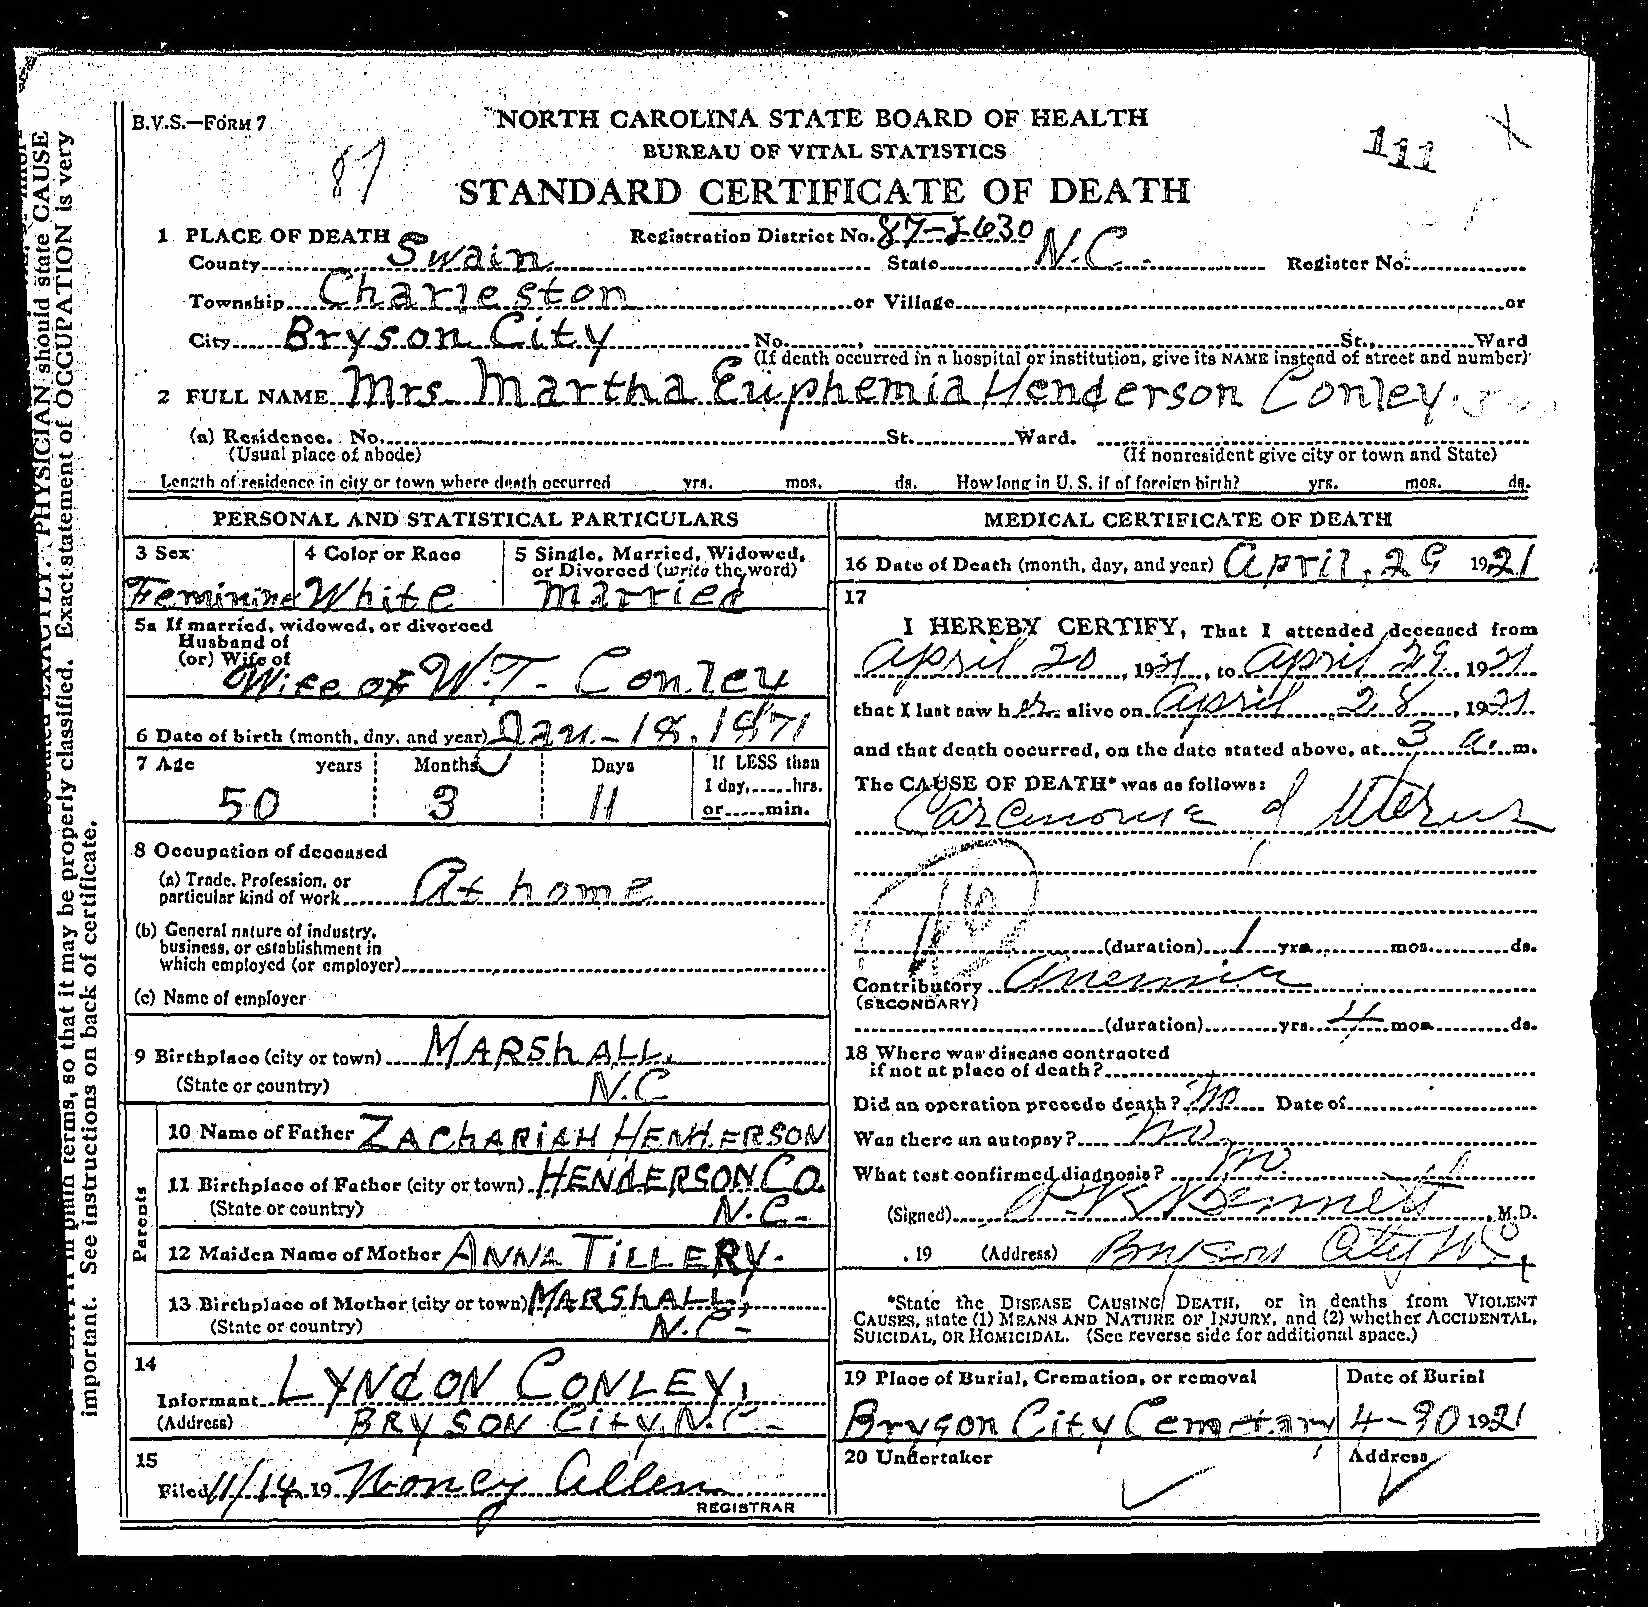 B.V.S.—FORM 7
NORTH CAROLINA STATE BOARD OF HEALTH
BUREAU OF VITAL STATISTICS
111
87
STANDARD CERTIFICATE OF DEATH
1 PLACE OF DEATH Registration District No. 87-5630
County Swain State N.C. Register No.
Township Charleston or Village or
City Bryson City No. , St., Ward
(If death occurred in a hospital or institution, give its NAME instead of street and number)
2 FULL NAME Mrs. Martha Euphemia Henderson Conley
(a) Residence. No. St. Ward.
(Usual place of abode) (If nonresident give city or town and State)
Length of residence in city or town where death occurred yrs. mos. ds. How long in U. S. if of foreign birth? yrs. mos. ds.
PERSONAL AND STATISTICAL PARTICULARS
3 Sex 4 Color or Race 5 Single, Married, Widowed,
or Divorced (write the word)
Feminine White Married
5a If married, widowed, or divorced
Husband of
(or) Wife of
Wife of W.T. Conley
6 Date of birth (month, day, and year) Jan.-18, 1871
7 Age years Months Days If LESS than
1 day, hrs.
or min.
50 3 11
8 Occupation of deceased
(a) Trade, Profession, or
particular kind of work At home
(b) General nature of industry,
business, or establishment in
which employed (or employer)
(c) Name of employer
9 Birthplace (city or town) MARShALL,
(State or country) N.C
Parents
10 Name of Father ZAChARiAH HENdERSON
11 Birthplace of Father (city or town) HENdERSON Co.
(State or country) N.C.-
12 Maiden Name of Mother ANNA TiLLERy.
13 Birthplace of Mother (city or town) MARShALL,
(State or country) N.C-
14
Informant LYNdON CONLEY,
(Address) BRYSON City, N.C.-
15
Filed 11/14, 19 Noney Allen
REGISTRAR
MEDICAL CERTIFICATE OF DEATH
16 Date of Death (month, day, and year) April, 29 1921
17
I HEREBY CERTIFY, That I attended deceased from
April 20, 1921, to April 29, 1921
that I last saw her alive on April 28, 1921
and that death occurred, on the date stated above, at 3 a. m.
The CAUSE OF DEATH* was as follows:
Carcinoma of Uterus
(duration) 1 yrs. mos. ds.
Contributory Anemia
(SECONDARY)
(duration) yrs. 4 mos. ds.
18 Where was disease contracted
if not at place of death?
Did an operation precede death? no Date of
Was there an autopsy? no
What test confirmed diagnosis? no
(Signed) Bennett, M.D.
, 19 (Address) Bryson City NC,
*State the DISEASE CAUSING DEATH, or in deaths from VIOLENT
CAUSES, state (1) MEANS AND NATURE OF INJURY, and (2) whether ACCIDENTAL,
SUICIDAL, OR HOMICIDAL. (See reverse side for additional space.)
19 Place of Burial, Cremation, or removal Date of Burial
Bryson City Cemetary 4-30 1921
20 Undertaker Address
PHYSICIAN should state CAUSE
in plain terms, so that it may be properly classified. Exact statement of OCCUPATION is very
important. See instructions on back of certificate.